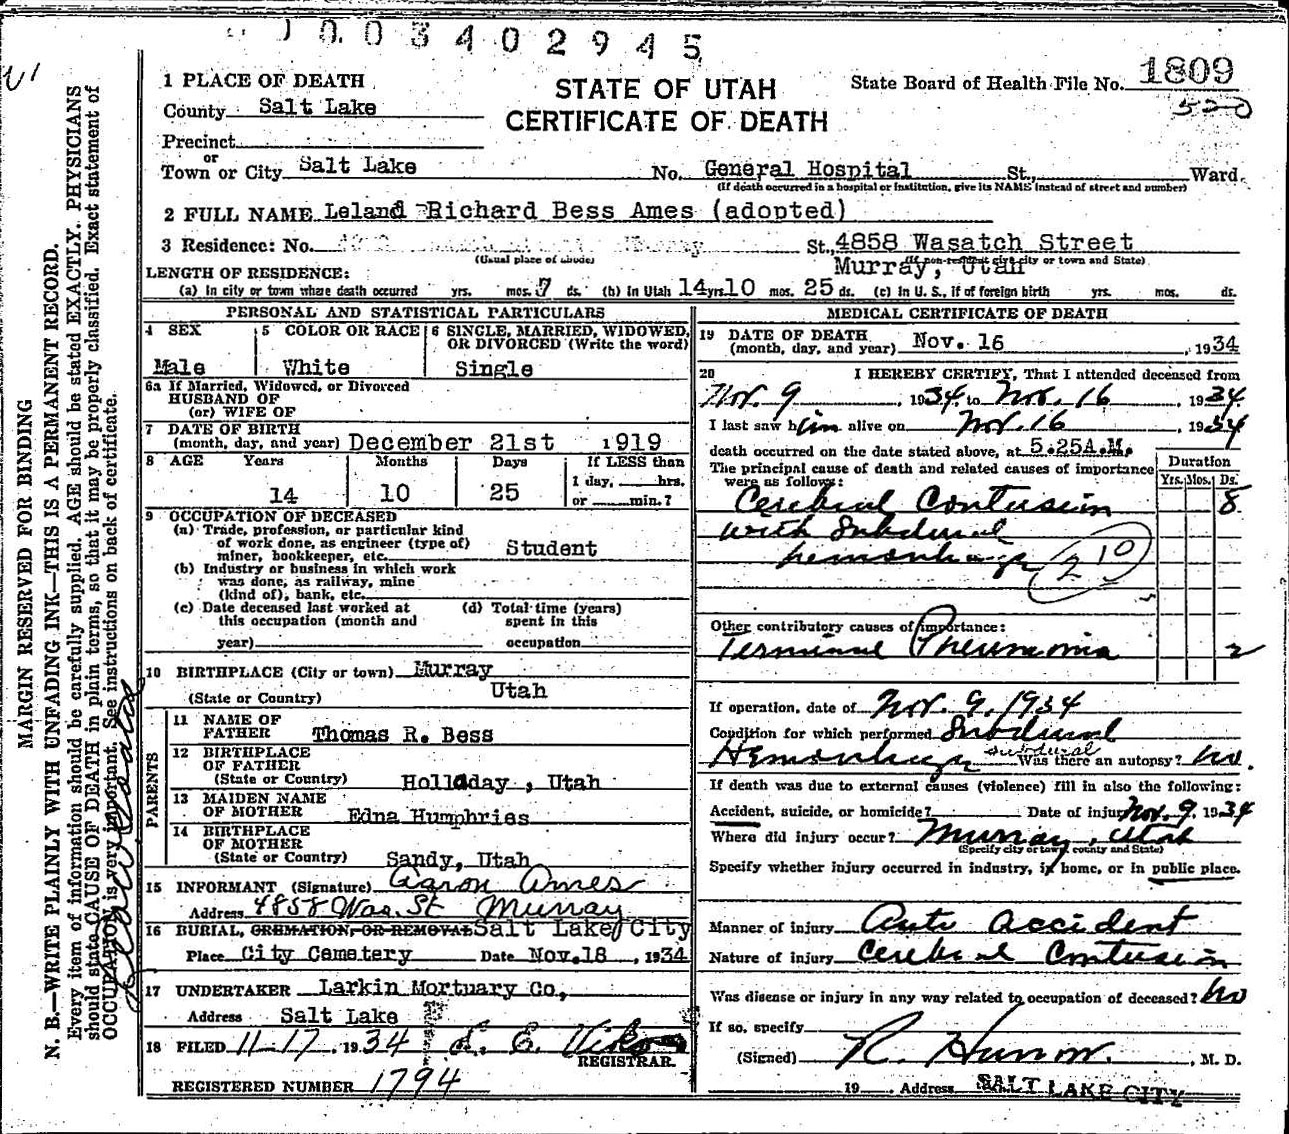 1 0 0 3 4 0 2 9 4 5
1 PLACE OF DEATH
STATE OF UTAH
CERTIFICATE OF DEATH
State Board of Health File No. 1809
520
County Salt Lake
Precinct
or
Town or City Salt Lake No. General Hospital St., Ward.
(If death occurred in a hospital or institution, give its NAME instead of street and number)
2 FULL NAME Leland Richard Bess Ames (adopted)
3 Residence: No. St., 4858 Wasatch Street
(Usual place of abode) Murray, Utah (If non-resident give city or town and State)
LENGTH OF RESIDENCE:
(a) In city or town where death occurred yrs. mos. 7 ds. (b) In Utah 14 yrs. 10 mos. 25 ds. (c) In U. S., if of foreign birth yrs. mos. ds.
PERSONAL AND STATISTICAL PARTICULARS
4 SEX 5 COLOR OR RACE 6 SINGLE, MARRIED, WIDOWED, OR DIVORCED (Write the word)
Male White Single
6a If Married, Widowed, or Divorced
HUSBAND OF
(or) WIFE OF
7 DATE OF BIRTH
(month, day, and year) December 21st 1919
8 AGE Years Months Days If LESS than
1 day, hrs.
14 10 25 or min.?
9 OCCUPATION OF DECEASED
(a) Trade, profession, or particular kind
of work done, as engineer (type of)
miner, bookkeeper, etc. Student
(b) Industry or business in which work
was done, as railway, mine
(kind of), bank, etc.
(c) Date deceased last worked at (d) Total time (years)
this occupation (month and spent in this
year) occupation
10 BIRTHPLACE (City or town) Murray
(State or Country) Utah
PARENTS
11 NAME OF
FATHER Thomas R. Bess
12 BIRTHPLACE
OF FATHER
(State or Country) Holladay, Utah
13 MAIDEN NAME
OF MOTHER Edna Humphries
14 BIRTHPLACE
OF MOTHER
(State or Country) Sandy, Utah
15 INFORMANT (Signature) Aaron Ames
Address 4858 Was. St Murray
16 BURIAL, CREMATION, OR REMOVAL Salt Lake City
Place City Cemetery Date Nov. 18, 1934
17 UNDERTAKER Larkin Mortuary Co,
Address Salt Lake
18 FILED 11-17, 1934
REGISTRAR.
REGISTERED NUMBER 1794
MEDICAL CERTIFICATE OF DEATH
19 DATE OF DEATH
(month, day, and year) Nov. 16, 1934
20 I HEREBY CERTIFY, That I attended deceased from
Nov. 9, 1934 to Nov. 16, 1934.
I last saw him alive on Nov. 16, 1934
death occurred on the date stated above, at 5.25A.M.
The principal cause of death and related causes of importance
were as follows:
Duration
Yrs. Mos. Ds.
Cerebral Contusion 8
with Subdural
hemorrhage 210
Other contributory causes of importance:
Terminal Pneumonia 2
If operation, date of Nov. 9, 1934
Condition for which performed Subdural
Hemorrhage subdural Was there an autopsy? no.
If death was due to external causes (violence) fill in also the following:
Accident, suicide, or homicide? Date of injury Nov. 9, 1934
Where did injury occur? Murray, Utah
(Specify city or town, county and State)
Specify whether injury occurred in industry, in home, or in public place.
Manner of injury Auto accident
Nature of injury Cerebral Contusion
Was disease or injury in any way related to occupation of deceased? No
If so, specify
(Signed) , M. D.
19 , Address SALT LAKE CITY
MARGIN RESERVED FOR BINDING
N. B.—WRITE PLAINLY WITH UNFADING INK—THIS IS A PERMANENT RECORD.
Every item of information should be carefully supplied. AGE should be stated EXACTLY. PHYSICIANS
should state CAUSE OF DEATH in plain terms, so that it may be properly classified. Exact statement of
OCCUPATION is very important. See instructions on back of certificate.